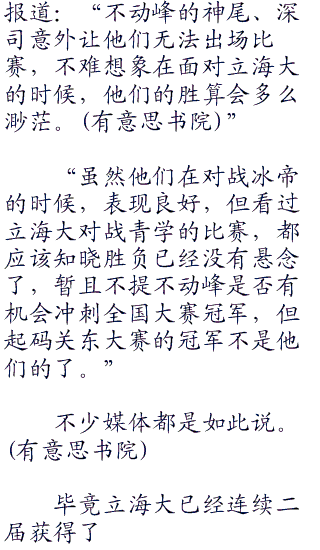 报道：“不动峰的神尾、深
司意外让他们无法出场比
赛，不难想象在面对立海大
的时候，他们的胜算会多么
渺茫。(有意思书院)”
“虽然他们在对战冰帝
的时候，表现良好，但看过
立海大对战青学的比赛，都
应该知晓胜负已经没有悬念
了，暂且不提不动峰是否有
机会冲刺全国大赛冠军，但
起码关东大赛的冠军不是他
们的了。”
不少媒体都是如此说。
(有意思书院)
毕竟立海大已经连续二
届获得了